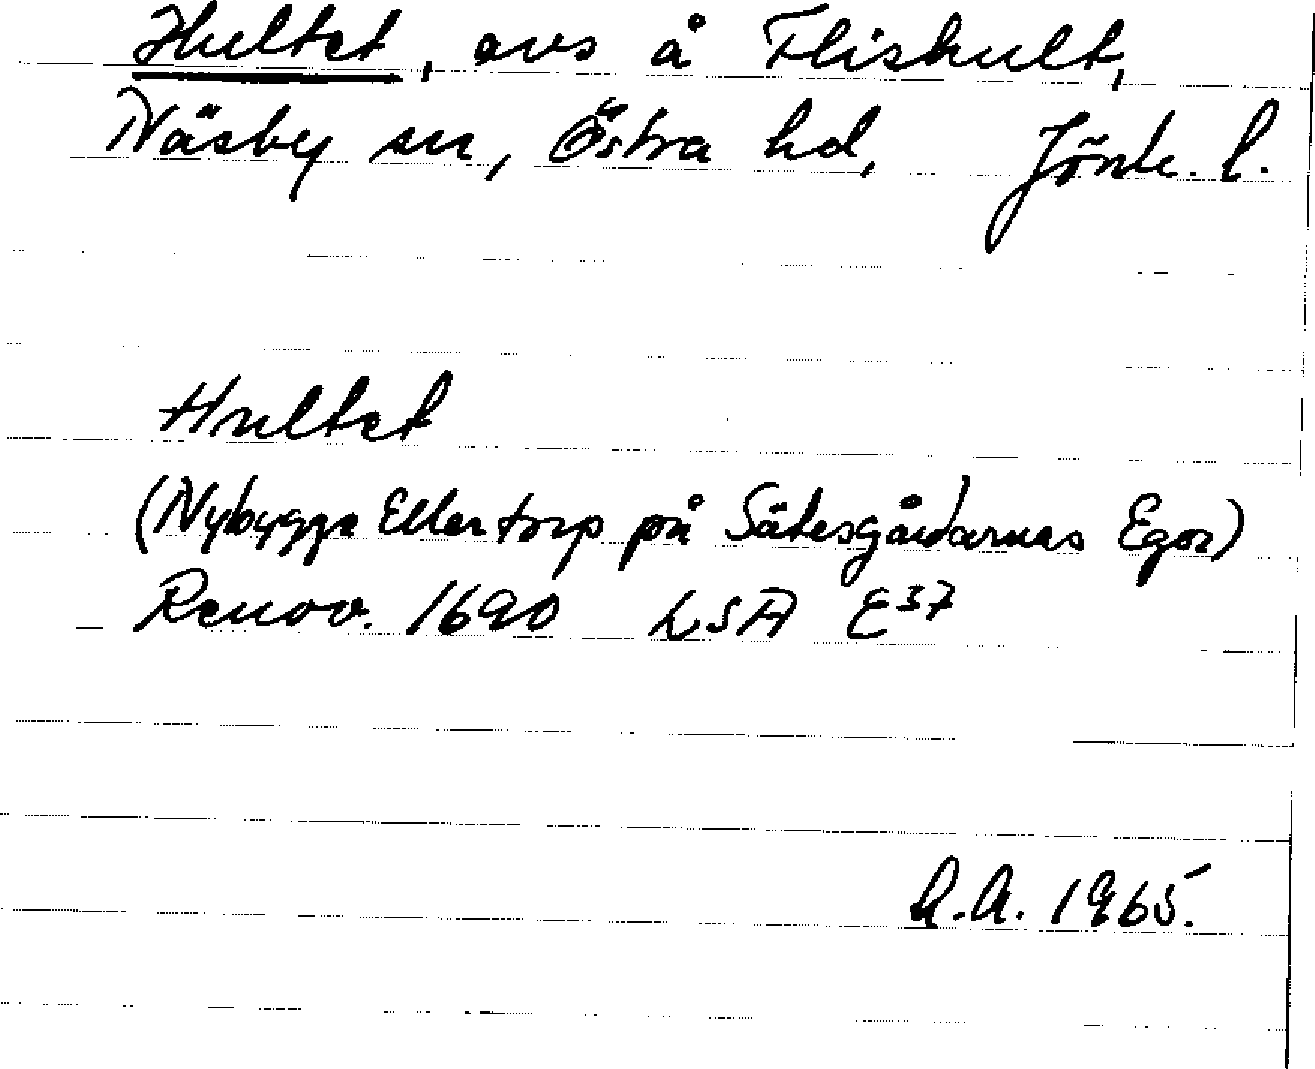 Hultet, avs å Fliskult,
Näsby sn, Östra hd, Jönk. l.
Hultet
(Nybygge Eller torp på Sätesgårdarnas Egor)
Renov. 1690 LSA E37
A.A. 1965.